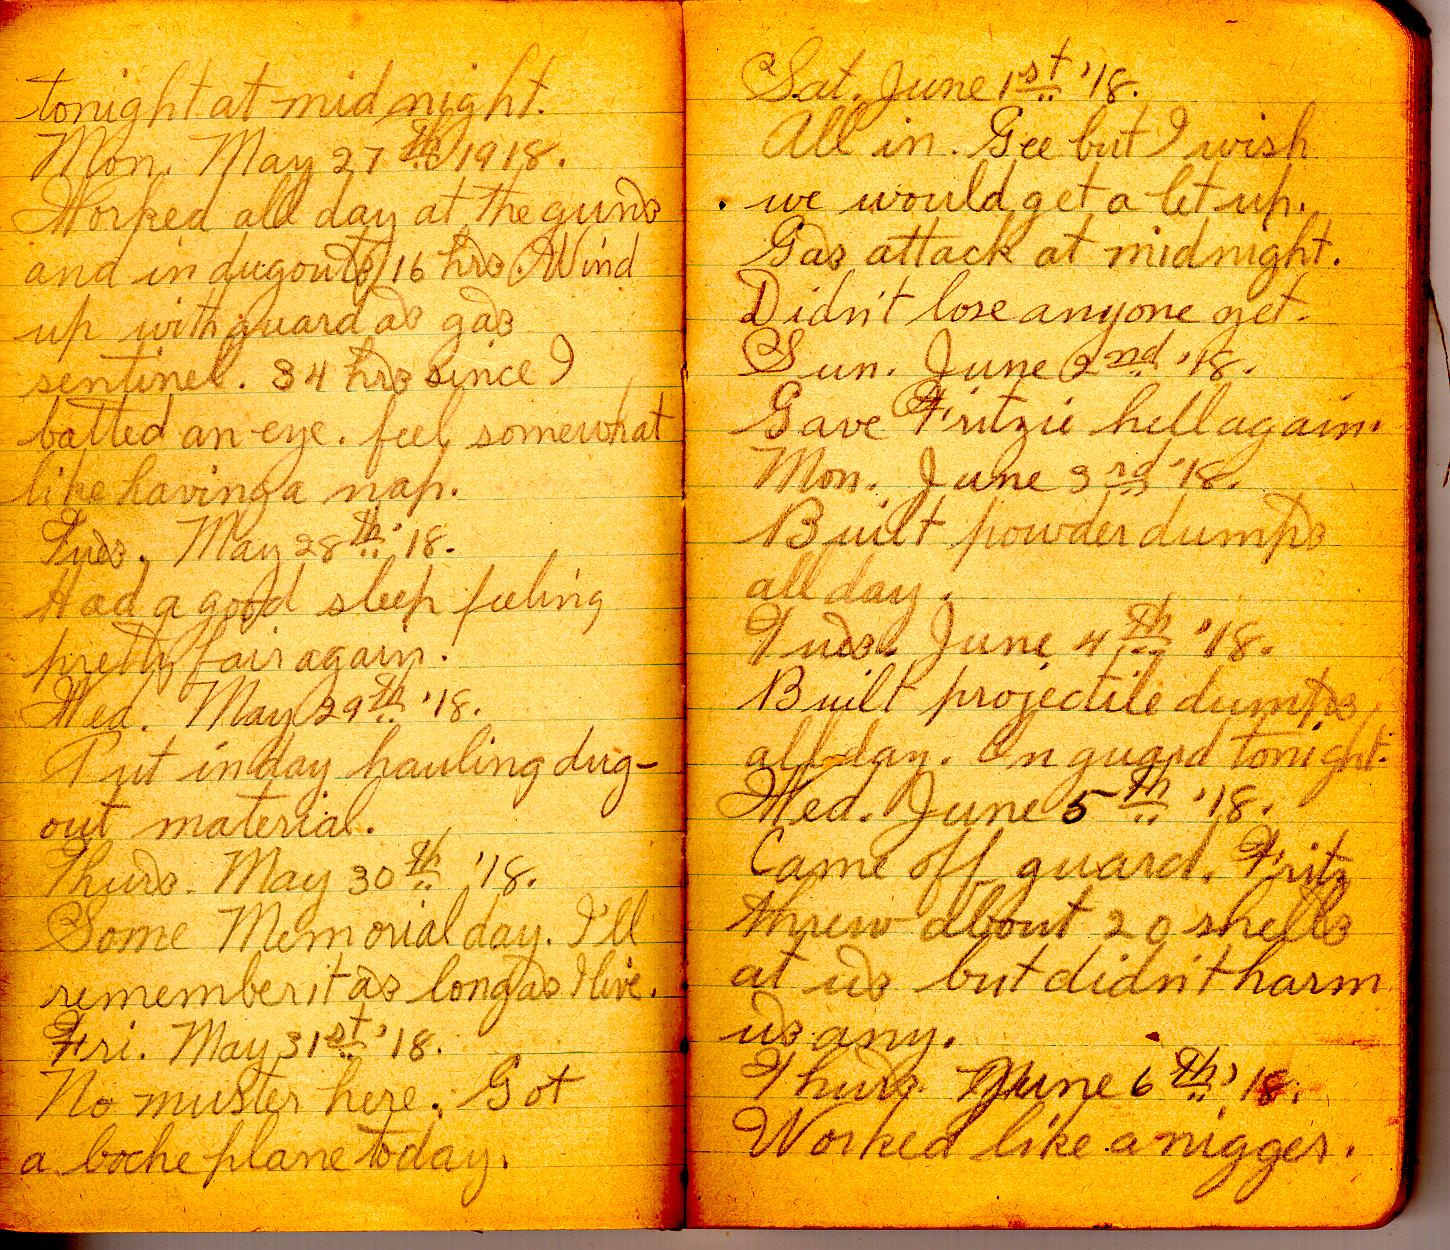 tonight at mid night.
Mon. May 27th 1918.
Worked all day at the guns
and in dugouts, 16 hrs. Wind
up with guard as gas
sentinel. 34 hrs since I
batted an eye. feel somewhat
like having a nap.
Tues. May 28th '18.
Had a good sleep feeling
pretty fair again.
Wed. May 29th '18.
Put in day hauling dug-
out material.
Thurs. May 30th '18.
Some Memorial day. I'll
remember it as long as I live.
Fri. May 31st '18.
No muster here. Got
a boche plane today.
Sat. June 1st '18.
All in. Gee but I wish
we would get a let up.
Gas attack at midnight.
Didn't lose anyone yet.
Sun. June 2nd '18.
Gave Fritzie hell again.
Mon. June 3rd '18.
Built powder dumps
all day.
Tues. June 4th '18.
Built projectile dumps,
all day. On guard tonight.
Wed. June 5th '18.
Came off guard. Fritz
threw about 20 shells
at us but didn't harm
us any.
Thurs. June 6th '18.
Worked like a nigger.